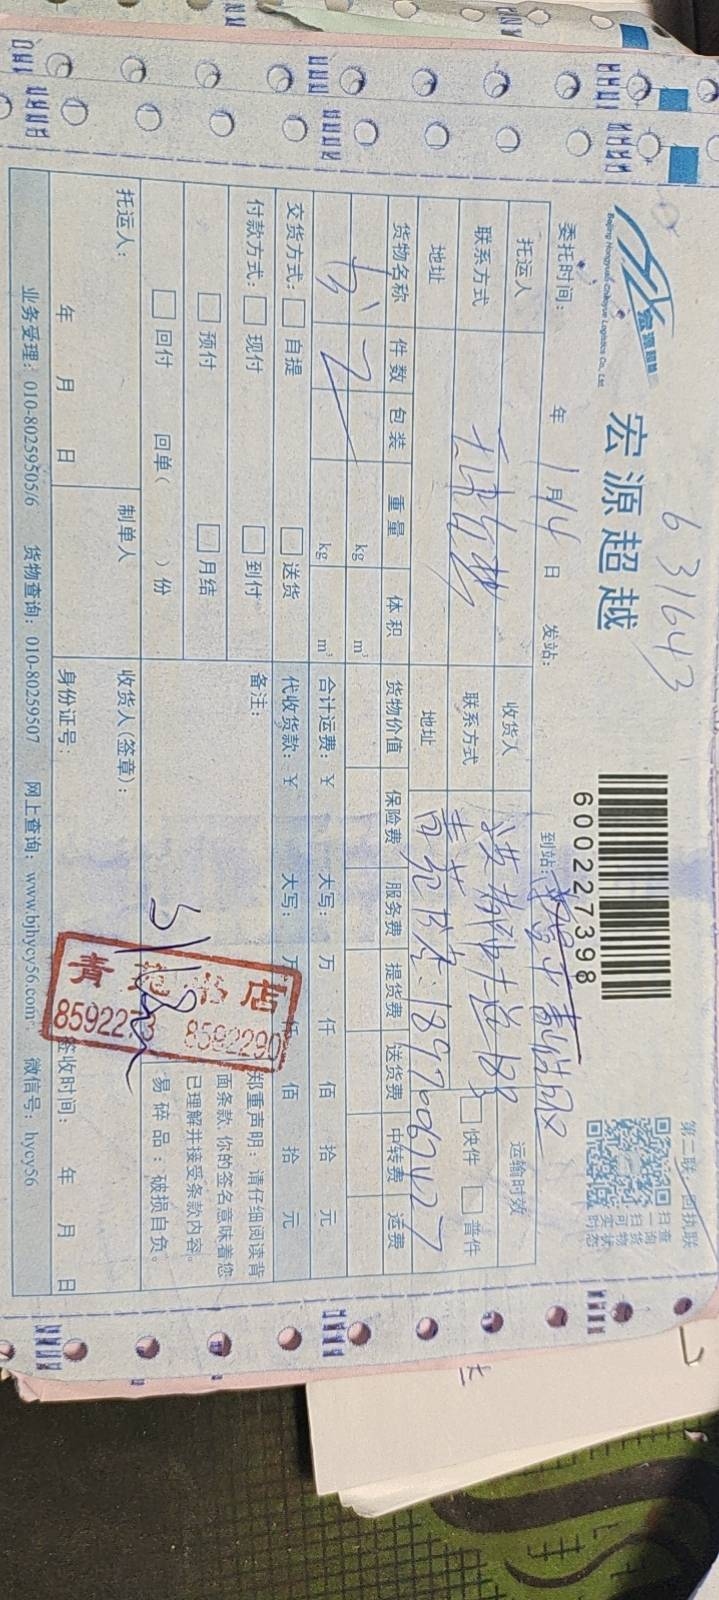 631643
宏源超越
Beijing Hongyuan Chaoyue Logistics Co., Ltd
宏源超越
600227398
第二联：回执联
扫一扫可实
查询货物状态
委托时间： 年 1月14日 发站： 到站：
托运人 收货人 运输时效
联系方式 联系方式 快件 普件
地址 地址 青苑书店：18976067427
货物名称 件数 包装 重量 体积 货物价值 保险费 服务费 提货费 送货费 中转费 运费
书 2 kg m³
kg m³ 合计运费：￥ 大写： 万 仟 佰 拾 元
交货方式： 自提 送货 代收货款：￥ 大写： 万 仟 佰 拾 元
付款方式： 现付 到付 备注：
预付 月结
回付 回单（ ）份
郑重声明：请仔细阅读背
面条款，你的签名意味着您
已理解并接受条款内容。
易碎品：破损自负。
托运人： 制单人 收货人(签章)：
年 月 日 身份证号： 签收时间： 年 月 日
青苑书店
8592273 8592290
业务受理：010-80259505/6 货物查询：010-80259507 网上查询：www.bjhycy56.com 微信号：hycy56